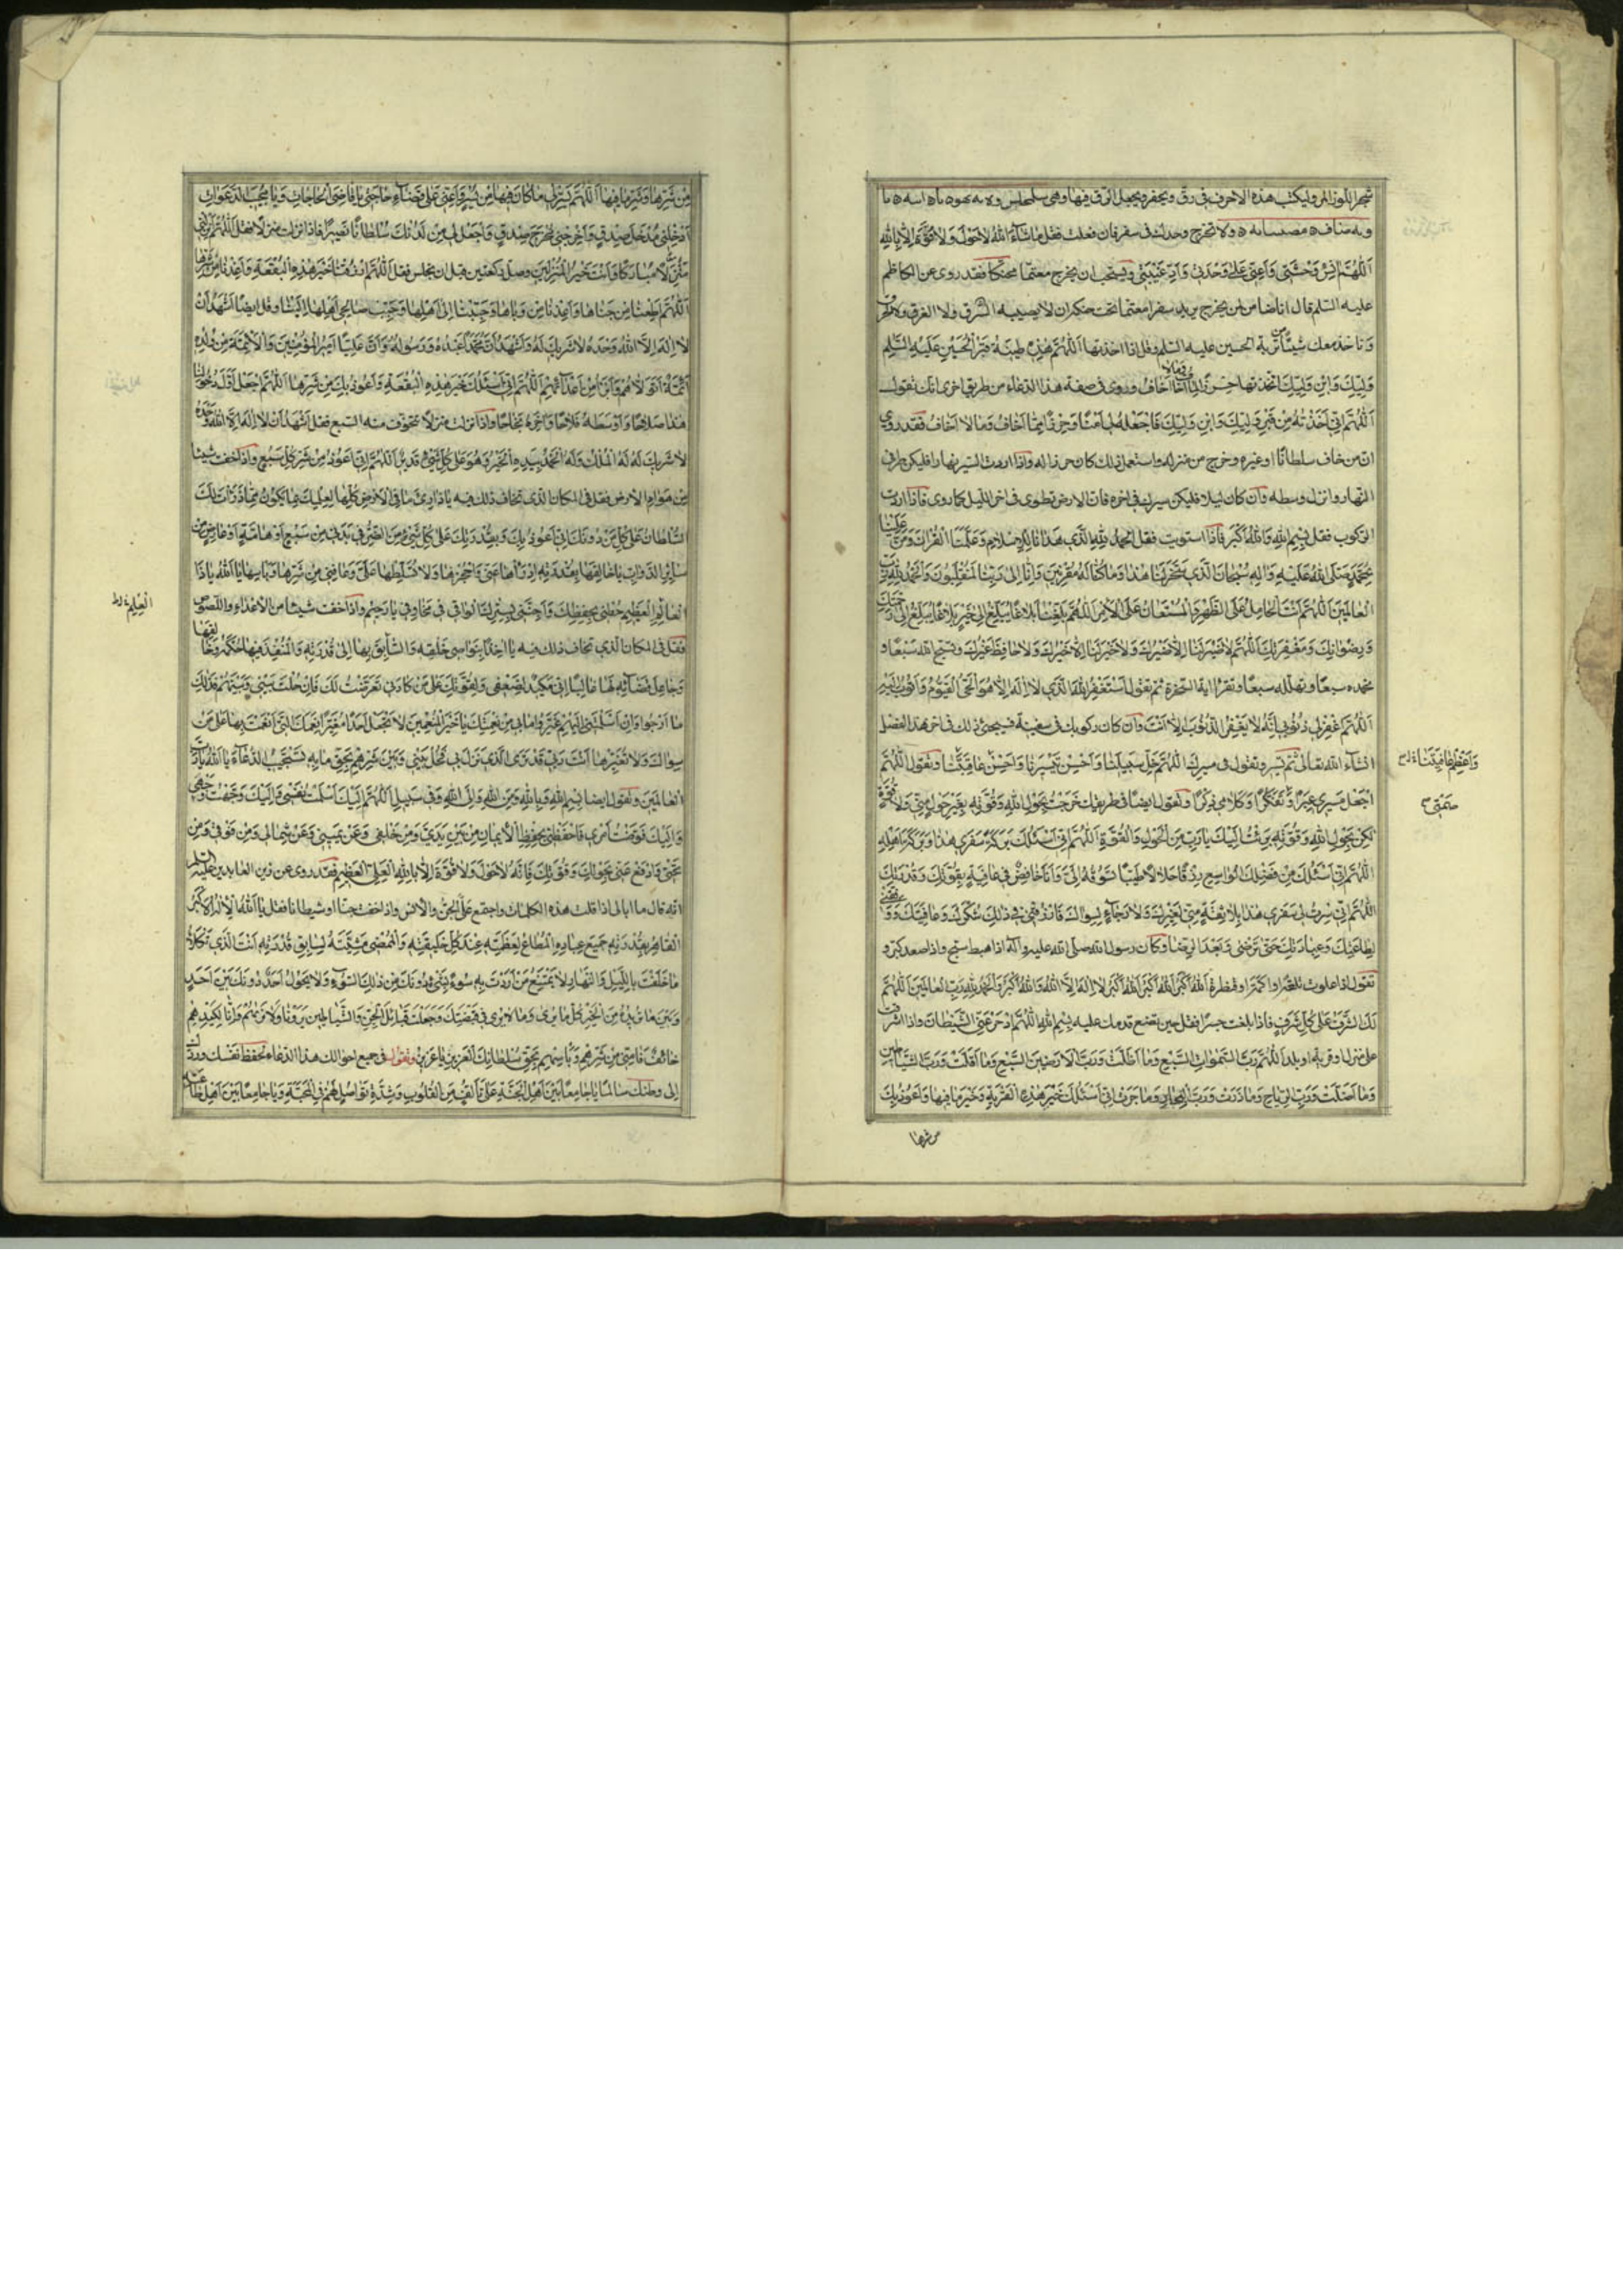 شجر اللوز المر وليكتب هذه الاحرف فى رق ويحفره ويجعل الرق فيها وهى
ولا تخرج وحدك فى سفر فان فعلت فقل ما شاء الله لا حول ولا قوة الا بالله
اللهم انس وحشتى واعنى على وحدتى وادّ غيبتى ويستحب ان يخرج معتما محنكا فقد روى عن الكاظم
عليه السلم قال انا ضامن لمن يخرج يريد سفرا معتما تحت حنكه ان لا يصيبه السرق ولا الغرق ولا الحرق
وتاخذ معك شيئا من تربة الحسين عليه السلم وقل اذا اخذتها اللهم هذه طينة قبر الحسين عليه السلم
وليك وابن وليك اتخذتها حرزا لما اخاف وما لا اخاف وروى فى صفة هذا الدعاء من طريق اخرى انك تقول
اللهم انى اخذته من قبر وليك وابن وليك فاجعله لى امنا وحرزا مما اخاف وما لا اخاف فقد روى
ان من خاف سلطانا او غيره وخرج من منزله واستعمل ذلك كان حرزا له واذا اردت السير نهارا فليكن طرفى
النهار وانزل وسطه وان كان ليلا فليكن سيرك فى اخره فان الارض تطوى فى اخر الليل كما روى فاذا اردت
الركوب فقل بسم الله والله اكبر فاذا استويت فقل الحمد لله الذى هدانا للاسلام وعلمنا القران ومن علينا
بمحمد صلى الله عليه واله سبحان الذى سخر لنا هذا وما كنا له مقرنين وانا الى ربنا لمنقلبون والحمد لله رب
العالمين اللهم انت الحامل على الظهر والمستعان على الامر اللهم بلغنا بلاغا يبلغ الى خير بلاغا يبلغ الى رحمتك
ورضوانك ومغفرتك اللهم لا ضير الا ضيرك ولا خير الا خيرك ولا حافظ غيرك وتسبح الله سبعا و
تحمده سبعا وتهلله سبعا وتقرا اية السخرة ثم تقول استغفر الله الذى لا اله الا هو الحى القيوم واتوب اليه
اللهم اغفر لى ذنوبى انه لا يغفر الذنوب الا انت وان كان ركوبك فى سفينة فسيجئ ذلك فى اخر هذا الفصل
انشاء الله تعالى ثم تسير وتقول فى مسيرك اللهم خل سبيلنا واحسن تسييرنا واحسن عاقبتنا وتقول اللهم
اجعل مسيرى عبرا وتفكرا وكلامى ذكرا وتقول ايضا فى طريقك خرجت بحول الله وقوته بغير حول منى ولا قوة
لكن بحول الله وقوته برئت اليك يا رب من الحول والقوة اللهم انى اسئلك بركة سفرى هذا وبركة اهله
اللهم انى اسئلك من فضلك الواسع رزقا حلالا طيبا تسوقه الى وانا خافض فى عافية بقوتك وقدرتك
اللهم انى سرت فى سفرى هذا بلا ثقة منى لغيرك ولا رجاء لسواك فارزقنى فى ذلك شكرك وعافيتك ووفقنى
لطاعتك وعبادتك حتى ترضى وبعد الرضا وكان رسول الله صلى الله عليه واله اذا هبط سبح واذا صعد كبر و
تقول اذا علوت تلعة او اكمة او قنطرة الله اكبر الله اكبر الله اكبر لا اله الا الله والله اكبر والحمد لله رب العالمين اللهم
لك الشرف على كل شرف فاذا بلغت جسرا فقل حين تضع قدمك عليه بسم الله اللهم ادحر عنى الشيطان واذا اشرفت
على منزل او قرية او بلد اللهم رب السموات السبع وما اظلت ورب الارضين السبع وما اقلت ورب الشياطين
وما اضلت ورب الرياح وما ذرت ورب البحار وما جرت انى اسئلك خير هذه القرية وخير ما فيها واعوذ بك
من شرها
واعظم عافيتنا
من شرها وشر ما فيها اللهم يسر لى ما كان فيها من يسر واعنى على قضاء حاجتى يا قاضى الحاجات ويا مجيب الدعوات
ادخلنى مدخل صدق واخرجنى مخرج صدق واجعل لى من لدنك سلطانا نصيرا فاذا نزلت منزلا فقل اللهم انزلنى
منزلا مباركا وانت خير المنزلين وصل ركعتين قبل ان تجلس فقل اللهم ارزقنا خير هذه البقعة واعذنا من شرها
اللهم اطعمنا من جناها واعذنا من وباها وحببنا الى اهلها وحبب صالحى اهلها الينا وقل ايضا اشهد ان
لا اله الا الله وحده لا شريك له واشهد ان محمدا عبده ورسوله وان عليا امير المؤمنين والائمة من ولده
ائمة اتولاهم وابرا من اعدائهم اللهم انى اسئلك خير هذه البقعة واعوذ بك من شرها اللهم اجعل اول دخولنا
هذا صلاحا واوسطه فلاحا واخره نجاحا واذا نزلت منزلا تتخوف منه السبع فقل اشهد ان لا اله الا الله وحده
لا شريك له له الملك وله الحمد بيده الخير وهو على كل شئ قدير اللهم انى اعوذ بك من شر كل سبع واذا خفت شيئا
من هوام الارض فقل فى المكان الذى تخاف ذلك فيه يا ذارئ ما فى الارض كلها لعلمك بما يكون مما ذرات لك
السلطان على كل من دونك انى اعوذ بك وبقدرتك على كل شئ من الضر فى بدنى من سبع او هامة او عارض من
ساير الدواب يا خالقها بقدرته ادراها عنى واحجزها ولا تسلطها على وعافنى من شرها وباسها يا الله يا ذا
العالم العظيم حطنى بحفظك واجنبنى بسترك الواقى فى مخاوفى يا رحيم واذا خفت شيئا من الاعداء واللصوص
فقل فى المكان الذى تخاف ذلك فيه يا اخذا بنواصى خلقه والسابق بها الى قدرته والمنفذ فيها حكمه وخالقها
وجاعل قضائه لها غالبا انى مكيد لضعفى ولقوتك على من كادنى تعرضت لك فان حلت بينى وبينهم فذلك
ما ارجوا وان اسلمتنى اليهم غيروا ما بى من نعمتك يا خير المنعمين لا تجعل احدا مغيرا نعمك التى انعمت بها على من
سواك ولا تغيرها انت ربى قد ترى الذى نزل بى فحل بينى وبين شرهم بحق ما به تستجيب الدعاء يا الله يا رب
العالمين وتقول ايضا بسم الله وبالله ومن الله والى الله وفى سبيل الله اللهم اليك اسلمت نفسى واليك وجهت وجهى
واليك فوضت امرى فاحفظنى بحفظ الايمان من بين يدى ومن خلفى وعن يمينى وعن شمالى ومن فوقى ومن
تحتى وادفع عنى بحولك وقوتك فانه لا حول ولا قوة الا بالله العلى العظيم فقد روى عن زين العابدين عليه السلم
انه قال ما ابالى اذا قلت هذه الكلمات واجتمع على الجن والانس واذا خفت جنا او شيطانا فقل يا الله الاله الاكبر
القاهر بقدرته جميع عباده المطاع لعظمته عند كل خليقته والممضى مشيته لسابق قدرته انت الذى تكلا
ما خلقت بالليل والنهار لا يمتنع من اردت به سوءا بشئ دونك من ذلك السوء ولا يحول احد دونك بين احد
وبين ما تريده من الخير كل ما يرى وما لا يرى فى قبضتك وجعلت قبائل الجن والشياطين يروننا ولا نريهم وانا لكيدهم
خائف فامنى من شرهم وباسهم بحق سلطانك العزيز يا عزيز وتقول فى جميع احوالك هذا الدعاء لحفظ نفسك وردك
الى وطنك سالما يا جامعا بين اهل الجنة على تالف من القلوب وشدة تواصل لهم فى المحبة ويا جامعا بين اهل طاعته